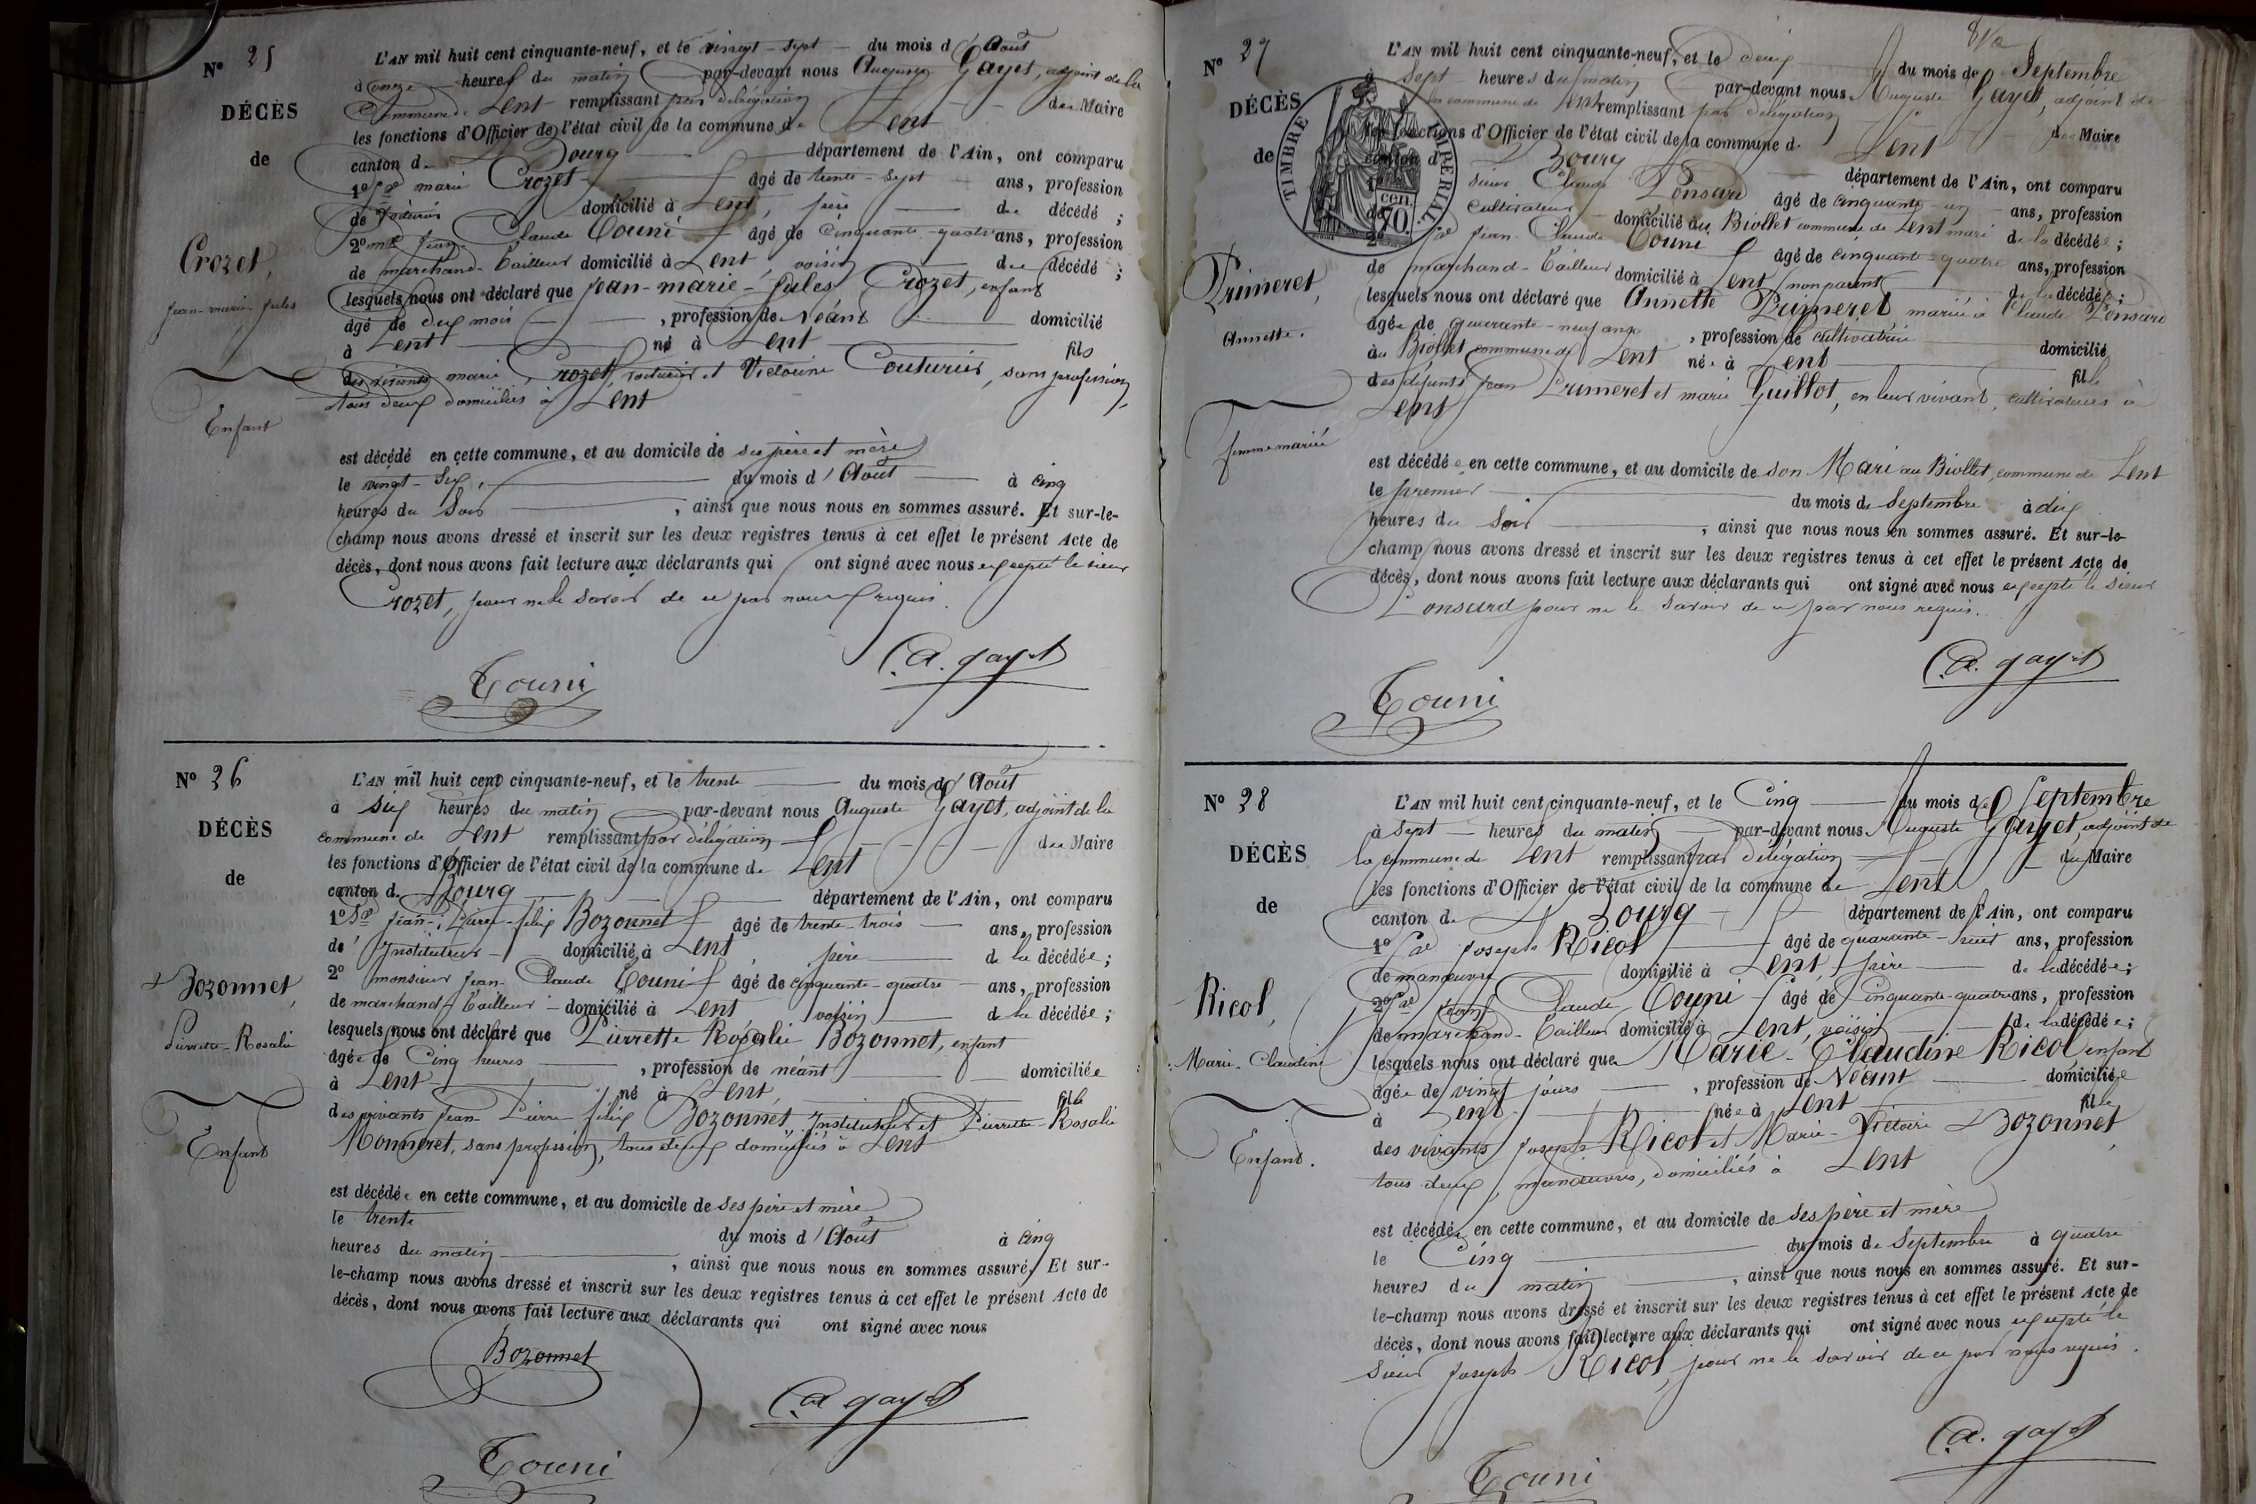 Nº 25
DÉCÈS
de
Crozet,
jean-marie-jules
Enfant
L'AN mil huit cent cinquante-neuf, et le vingt-sept du mois d'Août
à onze heures du matin par-devant nous Auguste Gayet, adjoint de la
commune de Lent remplissant par délégation du Maire
les fonctions d'Officier de l'état civil de la commune de Lent
canton de Bourg département de l'Ain, ont comparu
1º Sr marie Crozet âgé de trente-sept ans, profession
de voiturier domicilié à Lent, père du décédé ;
2º mr jean-Claude Couni âgé de cinquante-quatre ans, profession
de marchand-tailleur domicilié à Lent, voisin du décédé ;
lesquels nous ont déclaré que jean-marie-jules Crozet, enfant
âgé de dix mois, profession de Néant domicilié
à Lent né à Lent fils
des vivants marie Crozet, voiturier et Victorine Couturier, sans profession,
tous deux domiciliés à Lent
est décédé en cette commune, et au domicile de ses père et mère
le vingt-six, du mois d'Août à cinq
heures du soir, ainsi que nous nous en sommes assuré. Et sur-le-
champ nous avons dressé et inscrit sur les deux registres tenus à cet effet le présent Acte de
décès, dont nous avons fait lecture aux déclarants qui ont signé avec nous excepté le sieur
Crozet, pour ne le savoir de ce par nous requis.
C.A. gayet
Couni
Nº 26
DÉCÈS
de
Bozonnet,
Pierrette-Rosalie
Enfant
L'AN mil huit cent cinquante-neuf, et le trente du mois d'Août
à six heures du matin par-devant nous Auguste Gayet, adjoint de la
commune de Lent remplissant par délégation du Maire
les fonctions d'Officier de l'état civil de la commune de Lent
canton de Bourg département de l'Ain, ont comparu
1º Sr jean-Pierre-félix Bozonnet âgé de trente-trois ans, profession
de Instituteur domicilié à Lent père de la décédée ;
2º monsieur jean-Claude Couni âgé de cinquante-quatre ans, profession
de marchand-tailleur domicilié à Lent voisin de la décédée ;
lesquels nous ont déclaré que Pierrette Rosalie Bozonnet, enfant
âgée de cinq heures, profession de néant domiciliée
à Lent né à Lent fille
des vivants jean-Pierre félix Bozonnet, Instituteur et Pierrette-Rosalie
Monneret, sans profession, tous deux domiciliés à Lent
est décédée en cette commune, et au domicile de ses père et mère
le trente du mois d'Août à cinq
heures du matin, ainsi que nous nous en sommes assuré. Et sur-
le-champ nous avons dressé et inscrit sur les deux registres tenus à cet effet le présent Acte de
décès, dont nous avons fait lecture aux déclarants qui ont signé avec nous
Bozonnet
C.A. gayet
Couni
Nº 27
DÉCÈS
de
Primeret,
Annette.
femme mariée
TIMBRE IMPÉRIAL
70 cen.
L'AN mil huit cent cinquante-neuf, et le deux du mois de Septembre
à sept heures du matin par-devant nous Auguste Gayet, adjoint de
la commune de Lent remplissant par délégation du Maire
les fonctions d'Officier de l'état civil de la commune de Lent
canton de Bourg département de l'Ain, ont comparu
1º sieur Claude Ponsard âgé de cinquante-un ans, profession
de cultivateur domicilié au Biollet commune de Lent mari de la décédée ;
2º Sr jean-Claude Couni âgé de cinquante-quatre ans, profession
de marchand-tailleur domicilié à Lent, non parent de la décédée ;
lesquels nous ont déclaré que Annette Primeret mariée à Claude Ponsard
âgée de quarante-neuf ans, profession de cultivatrice domicilié
au Biollet commune de Lent née à Lent fille
des défunts jean Primeret et marie Guillot, en leur vivant, cultivateurs à
Lent
est décédée en cette commune, et au domicile de son Mari au Biollet, commune de Lent
le premier du mois de Septembre à dix
heures du soir, ainsi que nous nous en sommes assuré. Et sur-le-
champ nous avons dressé et inscrit sur les deux registres tenus à cet effet le présent Acte de
décès, dont nous avons fait lecture aux déclarants qui ont signé avec nous excepté le sieur
Ponsard pour ne le savoir de ce par nous requis.
C.A. gayet
Couni
Nº 28
DÉCÈS
de
Ricol,
Marie-Claudine
Enfant.
L'AN mil huit cent cinquante-neuf, et le Cinq du mois de Septembre
à sept heures du matin par-devant nous Auguste Gayet, adjoint de
la commune de Lent remplissant par délégation du Maire
les fonctions d'Officier de l'état civil de la commune de Lent
canton de Bourg département de l'Ain, ont comparu
1º Sr joseph Ricol âgé de quarante-huit ans, profession
de manœuvre domicilié à Lent, père de la décédée ;
2º Sr jean Claude Couni âgé de Cinquante-quatre ans, profession
de marchand-tailleur domicilié à Lent, voisin de la décédée ;
lesquels nous ont déclaré que Marie-Claudine Ricol, enfant
âgée de vingt jours, profession de Néant domiciliée
à Lent née à Lent fille
des vivants joseph Ricol et Marie-Victoire Bozonnet,
tous deux, manœuvres, domiciliés à Lent
est décédée en cette commune, et au domicile de ses père et mère
le Cinq du mois de Septembre à quatre
heures du matin, ainsi que nous nous en sommes assuré. Et sur-
le-champ nous avons dressé et inscrit sur les deux registres tenus à cet effet le présent Acte de
décès, dont nous avons fait lecture aux déclarants qui ont signé avec nous excepté le
sieur joseph Ricol, pour ne le savoir de ce par nous requis.
C.A. gayet
Couni